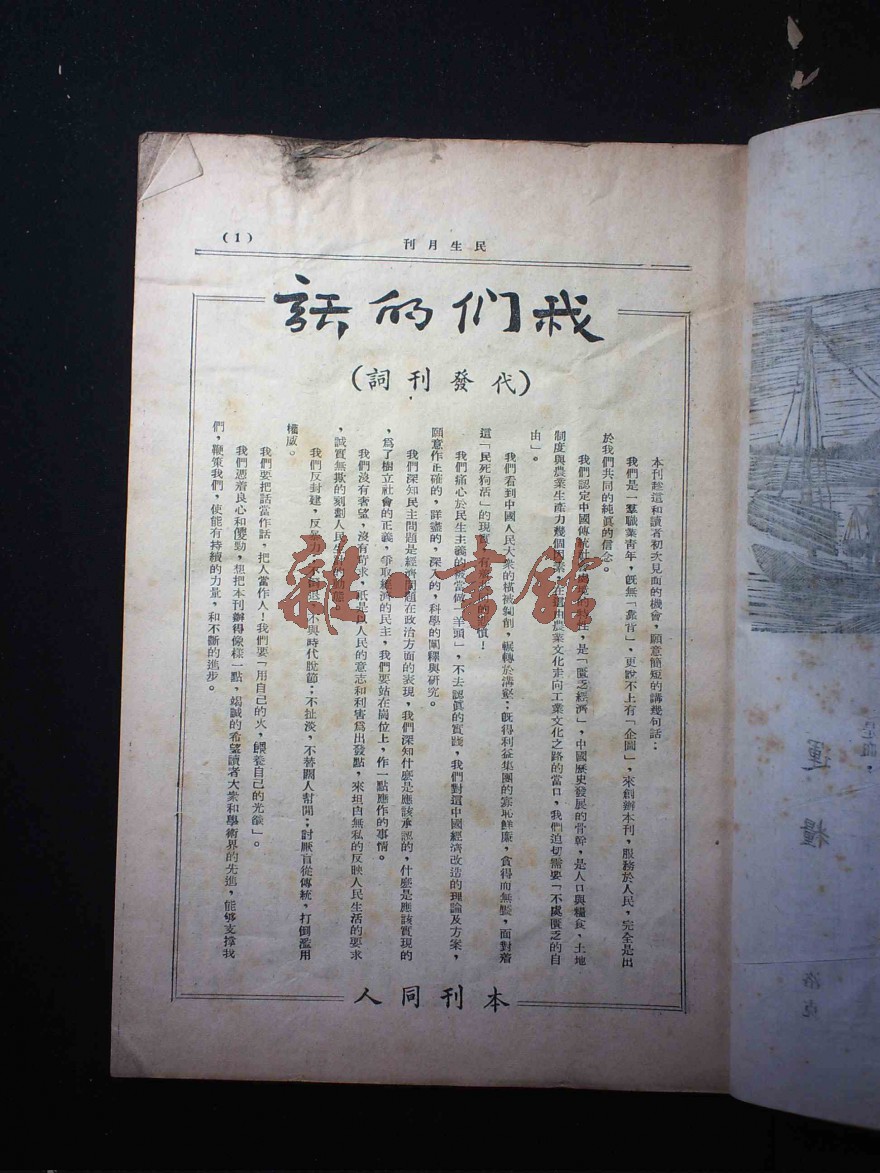 民生月刊
(1)
我們的話
(代發刊詞)
本刊趁這和讀者初次見面的機會,願意簡短的講幾句話:
我們是一羣職業青年,既無「靠背」,更說不上有「企圖」,來創辦本刊,服務於人民,完全是出
於我們共同的純眞的信念。
我們認定中國傳統社會 是「匱乏經濟」,中國歷史發展的骨幹,是人口與糧食,土地
制度與農業生產力幾個因素, 農業文化走向工業文化之路的當口,我們迫切需要「不處匱乏的自
由」。
我們看到中國人民大衆的橫被剝削,輾轉於溝壑;既得利益集團的寡恥鮮廉,貪得而無饜,面對着
這「民死狗活」的現實, !
我們痛心於民生主義的被當做「羊頭」,不去認眞的實踐,我們對這中國經濟改造的理論及方案,
願意作正確的,詳盡的,深入的,科學的闡釋與研究。
我們深知民主問題是經濟問題在政治方面的表現,我們深知什麼是應該承認的,什麼是應該實現的
,爲了樹立社會的正義,爭取經濟的民主,我們要站在崗位上,作一點應作的事情。
我們沒有奢望,沒有苛求,祇是以人民的意志和利害爲出發點,來坦白無私的反映人民生活的要求
,誠實無欺的刻劃人民生
我們反封建,反 不與時代脫節;不扯淡,不替闊人幇閒;討厭盲從傳統,打倒濫用
權威。
我們要把話當作話,把人當作人!我們要「用自己的火,餵養自己的光燄」。
我們憑着良心和傻勁,想把本刊辦得像樣一點,竭誠的希望讀者大衆和學術界的先進,能够支撐我
們,鞭策我們,使能有持續的力量,和不斷的進步。
本刊同人
雜·書館
運糧
洛克